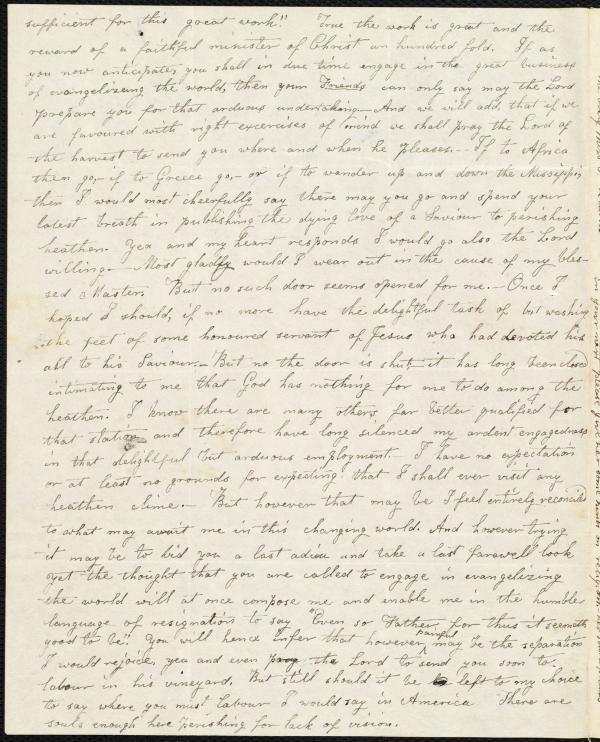 sufficient for this great work". True the work is great and the
reward of a faithful minister of Christ an hundred fold. If as
you now anticipate, you shall in due time engage in the great business
of evangelizing the world, then your Friends can only say may the Lord
prepare you for that arduous undertaking—And we will add, that if we
are favoured with right excercises of mind we shall pray the Lord of
the harvest to send you where and when he pleases.— If to Africa
then go,—if to Greece go,—or if to wander up and down the Missisippi,
then I would most cheerfully say there may you go and spend your
latest breath in publishing the dying love of a Saviour to perishing
heathen. Yea and my heart responds I would go also the Lord
willing.— Most gladly would I wear out in the cause of my bles-
sed Master. But no such door seems opened for me.— Once I
hoped I should, if no more have the delightful task of but washing
the feet of some honoured servant of Jesus who had devoted his
all to his Saviour.— But no the door is shut, it has long been closed
intimating to me that God has nothing for me to do among the
heathen. I know there are many others far better qualified for
that station and therefore have long silenced my ardent engagedness
in that delightful but arduous employment— I have no expectation
or at least no grounds for expecting that I shall ever visit any
heathen clime.— But however that may be I feel entirely reconciled
to what may await me in this changing world. And however trying
it may be to bid you a last adieu and take a last farewell look
yet the thought that you are called to engage in evangelizing
the world will at once compose me and enable me in the humble
language of resignation to say "Even so Father, for thus it seemeth
good to be". You will hence infer that however painful may be the separation
I would rejoice, yea and even pray the Lord to send you soon to
labour in his vineyard. But still should it be left to my choice
to say where you must labour I would say in America There are
souls enough here perishing for lack of vision.